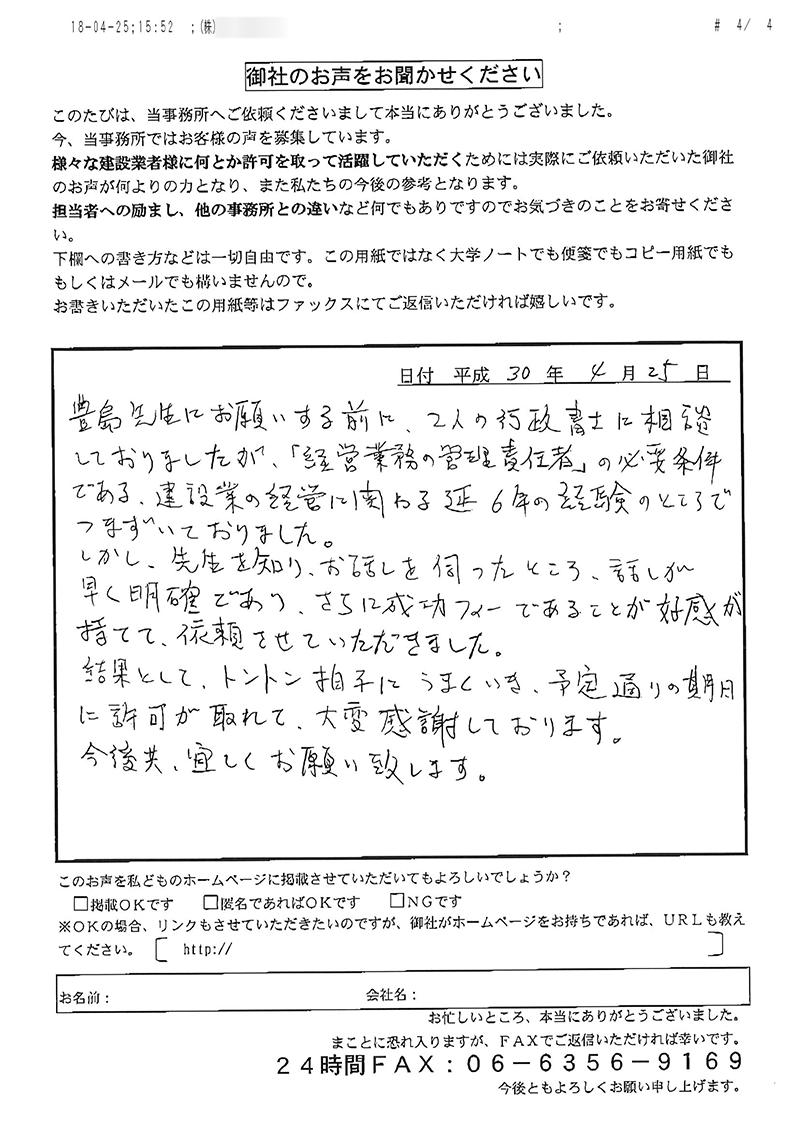 18-04-25;15:52 ;(株) ; # 4/ 4
御社のお声をお聞かせください
このたびは、当事務所へご依頼くださいまして本当にありがとうございました。
今、当事務所ではお客様の声を募集しています。
様々な建設業者様に何とか許可を取って活躍していただくためには実際にご依頼いただいた御社
のお声が何よりの力となり、また私たちの今後の参考となります。
担当者への励まし、他の事務所との違いなど何でもありですのでお気づきのことをお寄せくださ
い。
下欄への書き方などは一切自由です。この用紙ではなく大学ノートでも便箋でもコピー用紙でも
もしくはメールでも構いませんので。
お書きいただいたこの用紙等はファックスにてご返信いただければ嬉しいです。
日付 平成 30 年 4 月 25 日
豊島先生にお願いする前に、2人の行政書士に相談
しておりましたが、「経営業務の管理責任者」の必要条件
である、建設業の経営に関わる延6年の経験のところで
つまずいておりました。
しかし、先生を知り、お話しを伺ったところ、話しが
早く明確であり、さらに成功フィーであることが好感が
持てて、依頼させていただきました。
結果として、トントン拍子にうまくいき、予定通りの期日
に許可が取れて、大変感謝しております。
今後共、宜しくお願い致します。
このお声を私どものホームページに掲載させていただいてもよろしいでしょうか？
□掲載ＯＫです □匿名であればＯＫです □ＮＧです
※ＯＫの場合、リンクもさせていただきたいのですが、御社がホームページをお持ちであれば、ＵＲＬも教え
てください。 [ http:// ]
お名前： 会社名：
お忙しいところ、本当にありがとうございました。
まことに恐れ入りますが、ＦＡＸでご返信いただければ幸いです。
２４時間ＦＡＸ：０６－６３５６－９１６９
今後ともよろしくお願い申し上げます。